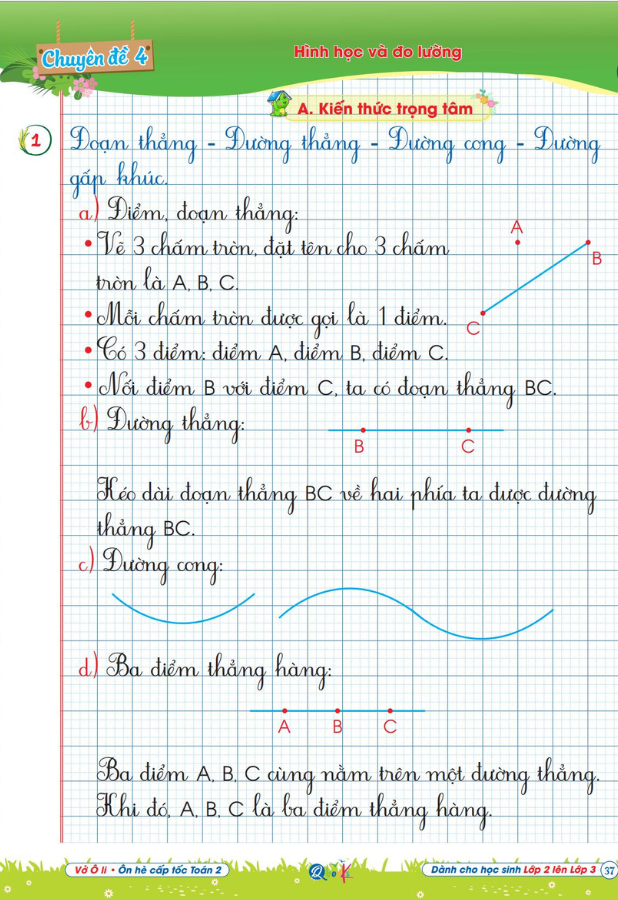 Chuyên đề 4
Hình học và đo lường
A. Kiến thức trọng tâm
1
Đoạn thẳng - Đường thẳng - Đường cong - Đường
gấp khúc.
a) Điểm, đoạn thẳng:
• Vẽ 3 chấm tròn, đặt tên cho 3 chấm
tròn là A, B, C.
A
B
C
• Mỗi chấm tròn được gọi là 1 điểm.
• Có 3 điểm: điểm A, điểm B, điểm C.
• Nối điểm B với điểm C, ta có đoạn thẳng BC.
b) Đường thẳng:
B C
Kéo dài đoạn thẳng BC về hai phía ta được đường
thẳng BC.
c) Đường cong:
d) Ba điểm thẳng hàng:
A B C
Ba điểm A, B, C cùng nằm trên một đường thẳng.
Khi đó, A, B, C là ba điểm thẳng hàng.
Vở Ô li • Ôn hè cấp tốc Toán 2
Dành cho học sinh Lớp 2 lên Lớp 3
37